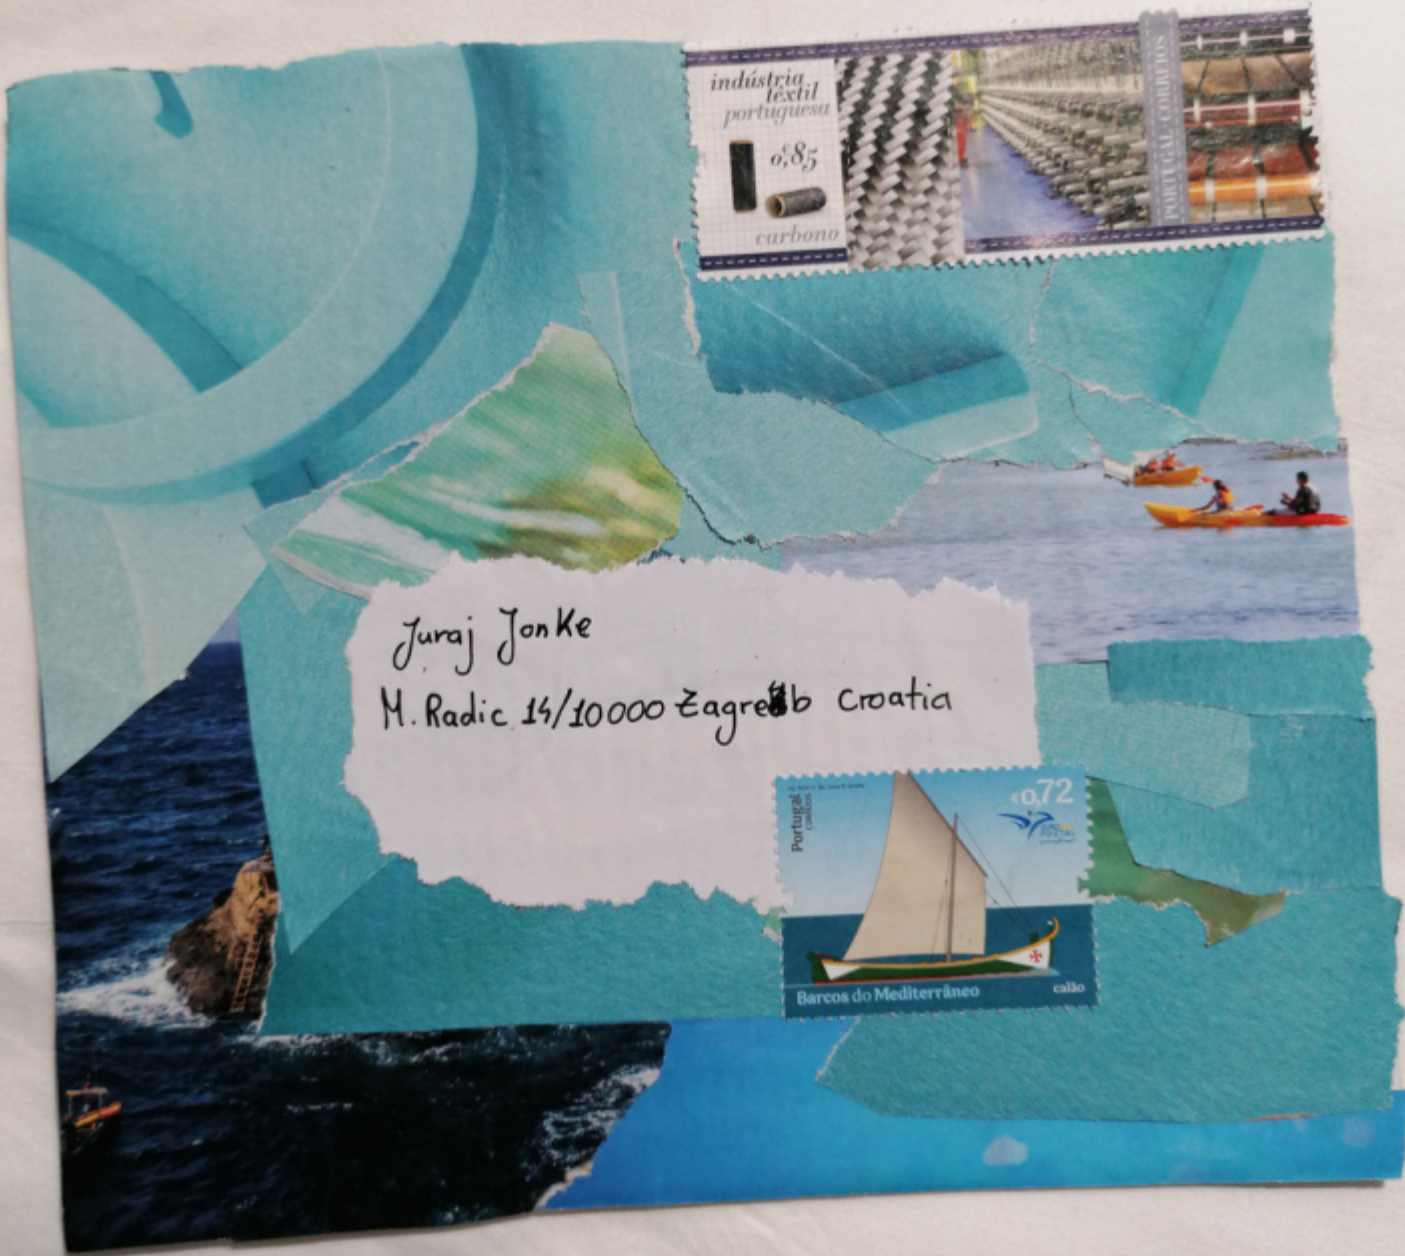 indústria
têxtil
portuguesa
€0,85
carbono
PORTUGAL CORREIOS
Juraj Jonke
M. Radic 14/10000 Zagreb Croatia
Portugal
CORREIOS
€0,72
EUROMED
POSTAL
Barcos do Mediterrâneo
calão